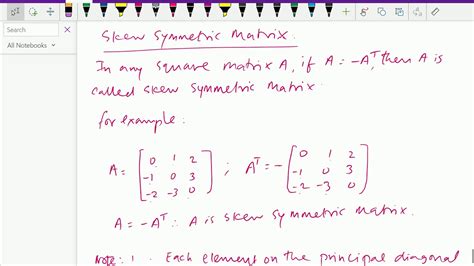 Search
All Notebooks
Skew Symmetric Matrix.
In any square matrix A, if A = -Aᵀ, then A is
called skew symmetric matrix.
for example:
A = [0 1 2; -1 0 3; -2 -3 0] ; Aᵀ = -[0 1 2; -1 0 3; -2 -3 0]
A = -Aᵀ ∴ A is skew symmetric matrix.
Note: 1. Each element on the principal diagonal